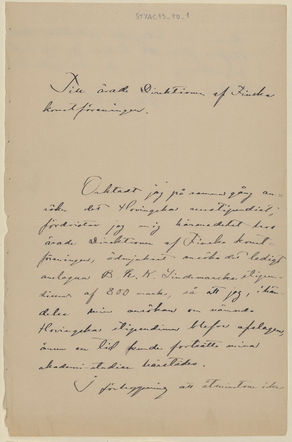 Till ärade Direktionen af Finska
konstföreningen.
Ehuru jag på samma gång an-
söker det Hovingska resestipendiet,
fördristar jag mig härmedelst hos
ärade Direktionen af Finska konst-
föreningen, ödmjukast ansöka det ledigt
anslagna B. K. H. Lindemanska stipen-
dium af 800 mark, så att jag, i hän-
delse min ansökan om nämnda
Hovingska stipendium blefve afslagen,
ännu en tid kunde fortsätta mina
akademi studier härstädes.
I förhoppning att åtminstone icke